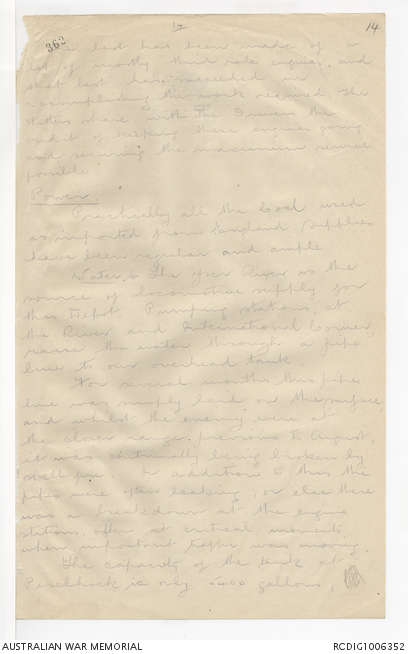 363
14
best has been made of a
lot of mostly third rate engines, and
that last have succeeded in
accomplishing the work required. The
the
credit of keeping these engines going
and securing the maximum service
possible
Power.
Practically all the Coal used
is imported from England Supplies
have been regular and ample
Water. The Yser River is the
source of locomotive supply for
this Depot. Pumping stations, at
the River and International Corner,
raise the water through a pipe
line to our overhead tank.
For several months this pipe
line was simply laid on the surface,
and whilst the enemy were at
the closer range, previous to August,
it was continually being broken by
shell fire. In addition to this the
pipes were often leaking, or else there
was a breakdown at the engine
stations, often at critical moments
when important traffic was moving.
The capacity of the tank at
Peselhoek is only gallons,
AUSTRALIAN WAR MEMORIAL
RCDIG1006352